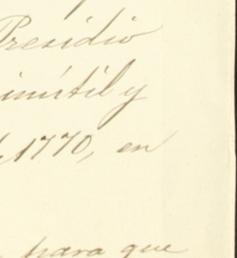 Presidio
inutil y
1770, en
para que